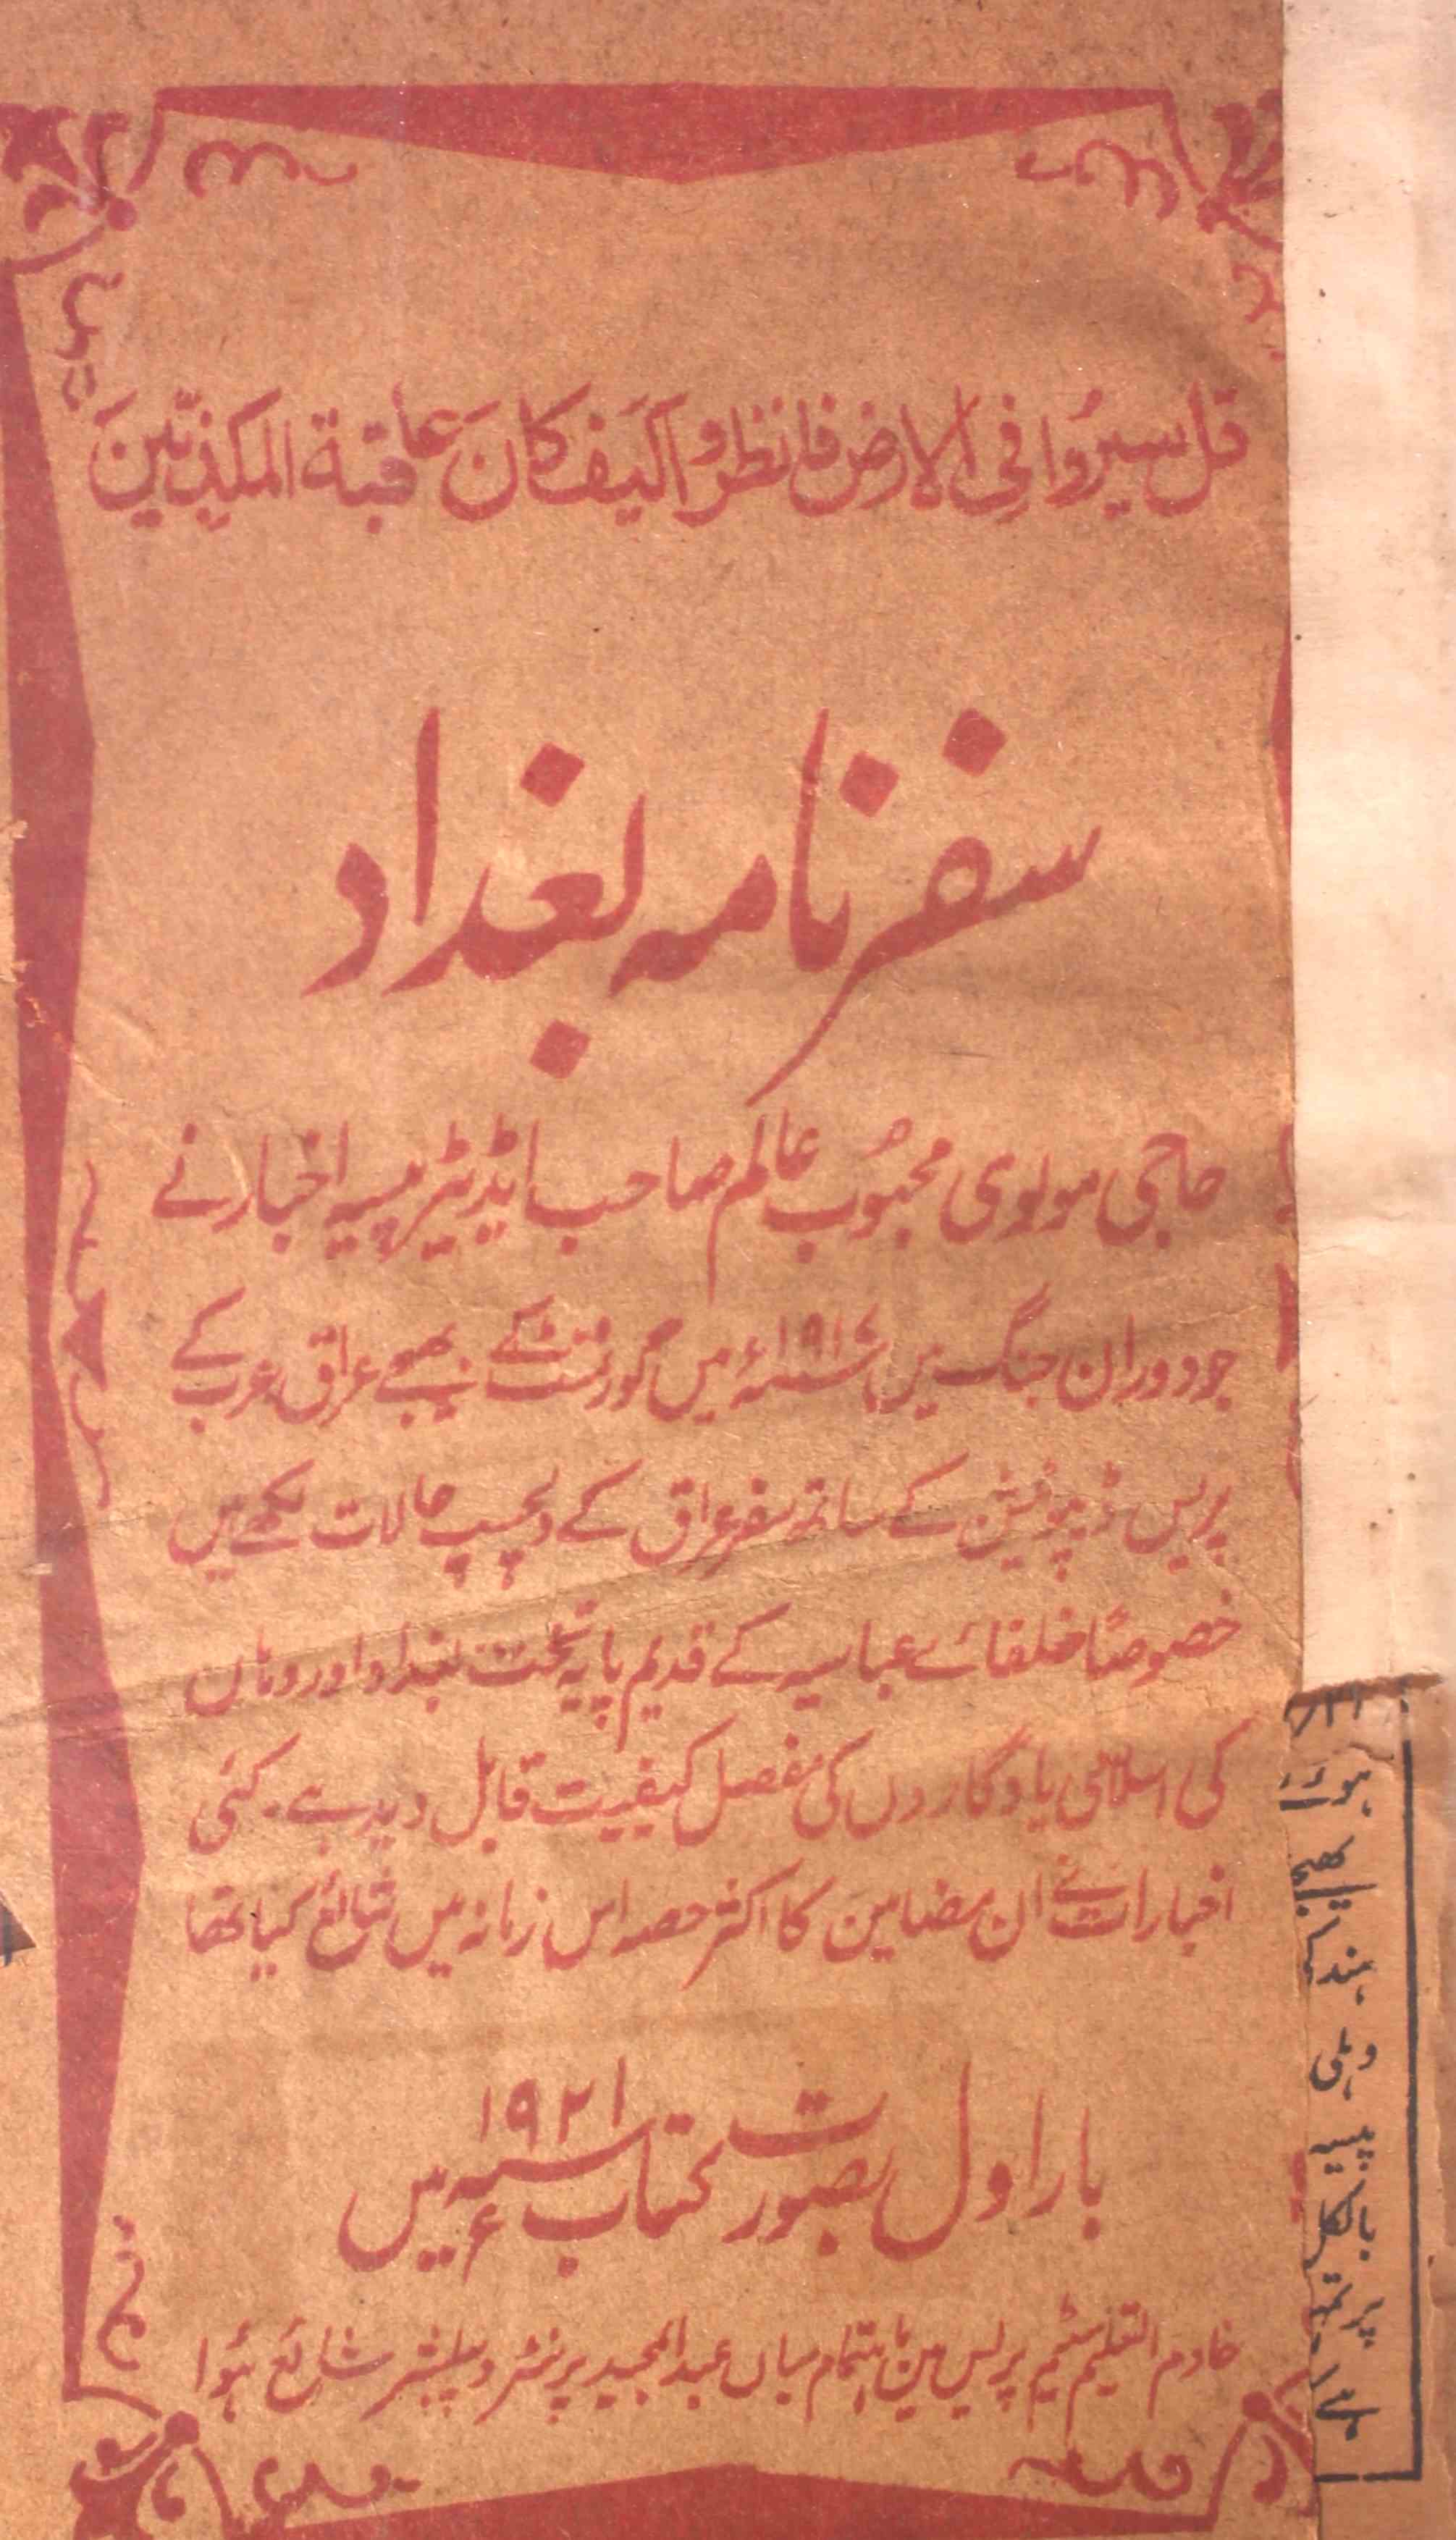 قل سیرُوا فی الارض فانظروا کیَف کانَ عاقبة المکذّبینَ
سفرنامہ بغداد
حاجی مولوی محبُوب عالم صاحب ایڈیٹر پیسہ اخبار نے
جو دوران جنگ میں ۱۹۱۷ء میں گورنمنٹ کے بھیجے عراق عرب کے
پریس ڈیپوٹیشن کے ساتھ سفر عراق کے دلچسپ حالات لکھے ہیں
خصوصاً خلفائے عباسیہ کے قدیم پایہ تخت بغداد اور وہاں
کی اسلامی یادگاروں کی مفصل کیفیت قابل دید ہے۔ کئی
اخبارات نے ان مضامین کا اکثر حصہ اس زمانہ میں شائع کیا تھا
بار اول بصورت کتاب ۱۹۲۱ء میں
خادم التعلیم سٹیم پریس میں باہتمام میاں عبدالمجید پرنٹر و پبلشر شائع ہؤا